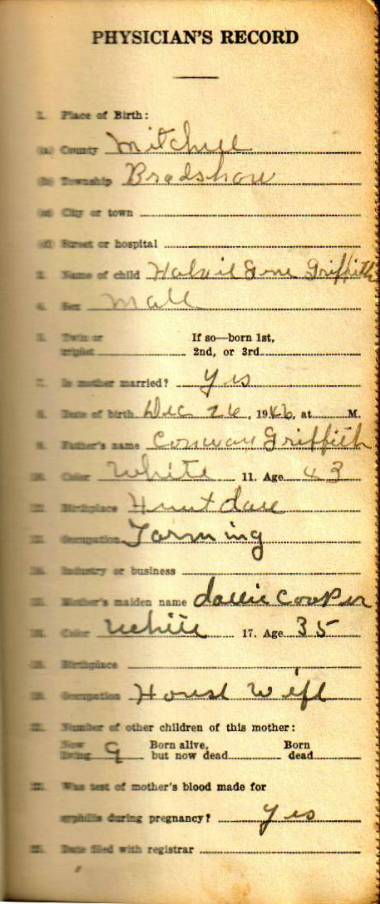 PHYSICIAN'S RECORD
1. Place of Birth:
(a) County Mitchell
(b) Township Bradshaw
(c) City or town
(d) Street or hospital
2. Name of child Gene Griffith
4. Sex Male
5. Twin or triplet If so—born 1st, 2nd, or 3rd
7. Is mother married? Yes
8. Date of birth Dec 26, 1946, at M.
9. Father's name Conway Griffith
10. Color White 11. Age 43
12. Birthplace Huntdale
13. Occupation Farming
14. Industry or business
15. Mother's maiden name dallie Cooper
16. Color White 17. Age 35
18. Birthplace
19. Occupation House Wife
Number of other children of this mother:
Now living 9 Born alive, but now dead Born dead
Was test of mother's blood made for
syphilis during pregnancy? Yes
Date filed with registrar